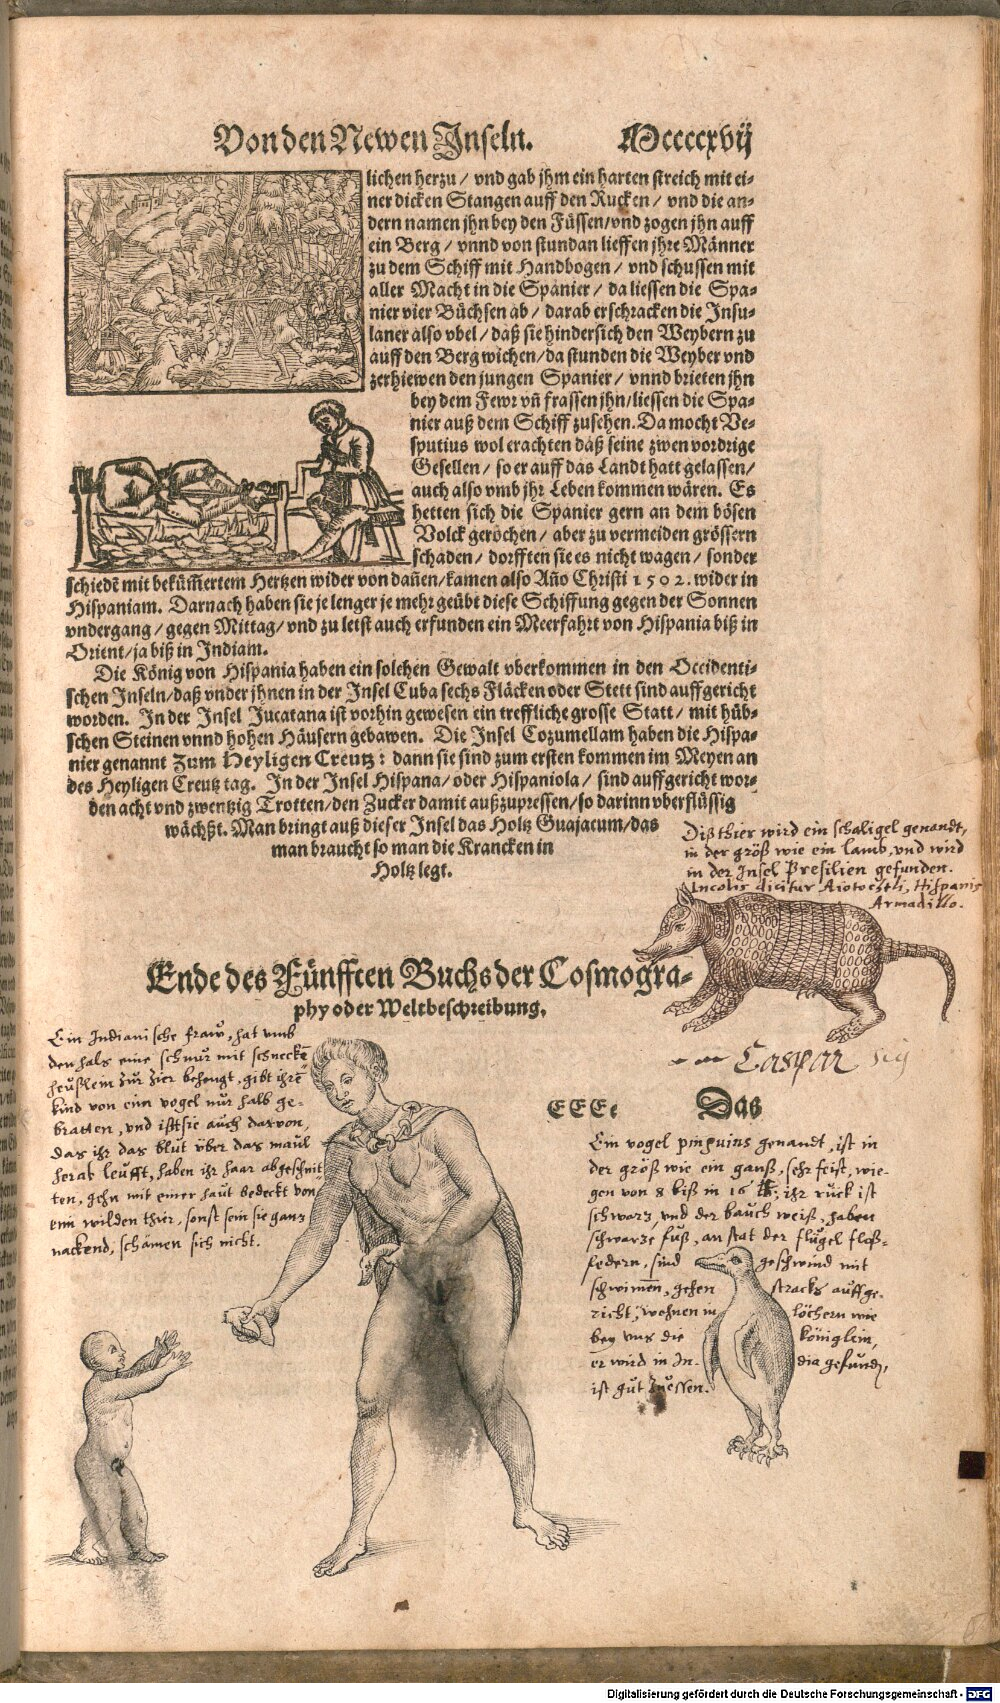 Von den Newen Inseln. Mccccxvij
lichen herzu / vnd gab jhm ein harten streich mit ei⸗
ner dicken Stangen auff den Rucken / vnd die an⸗
dern namen jhn bey den Füssen/vnd zogen jhn auff
ein Berg / vnnd von stundan lieffen jhre Männer
zu dem Schiff mit Handbogen / vnd schussen mit
aller Macht in die Spanier / da liessen die Spa⸗
nier vier Büchsen ab / darab erschracken die Insu⸗
laner also vbel / daß sie hindersich den Weybern zu
auff den Berg wichen/da stunden die Weyber vnd
zerhiewen den jungen Spanier / vnnd brieten jhn
bey dem Fewr vñ frassen jhn/liessen die Spa⸗
nier auß dem Schiff zusehen. Da mocht Ve⸗
sputius wol erachten daß seine zwen vordrige
Gesellen / so er auff das Landt hatt gelassen/
auch also vmb jhr Leben kommen wären. Es
hetten sich die Spanier gern an dem bösen
Volck gerochen / aber zu vermeiden grössern
schaden / dorfften sie es nicht wagen / sonder
schiedẽ mit bekũmertem Hertzen wider von dañen/kamen also Año Christi 1502. wider in
Hispaniam. Darnach haben sie je lenger je mehr geübt diese Schiffung gegen der Sonnen
vndergang / gegen Mittag/ vnd zu letst auch erfunden ein Meerfahrt von Hispania biß in
Orient/ja biß in Indiam.
Die König von Hispania haben ein solchen Gewalt vberkommen in den Occidenti⸗
schen Inseln/daß vnder jhnen in der Insel Cuba sechs Fläcken oder Stett sind auffgericht
worden. In der Insel Jucatana ist vorhin gewesen ein treffliche grosse Statt / mit hüb⸗
schen Steinen vnnd hohen Häusern gebawen. Die Insel Cozumellam haben die Hispa⸗
nier genannt Zum Heyligen Creutz: dann sie sind zum ersten kommen im Meyen an
des Heyligen Creutz tag. In der Insel Hispana/ oder Hispaniola / sind auffgericht wor⸗
den acht vnd zwentzig Trotten/den Zucker damit außzupressen/so darinn vberflüssig
wächßt. Man bringt auß dieser Insel das Holtz Guajacum/das
man braucht so man die Krancken in
Holtz legt.
Diß thier wird ein schaligel genandt,
in der größ wie ein lamb, vnd wird
in der Insel Presilien gefunden.
Incolis dicitur Aiotochtli, Hispanis
Armadillo.
Ende des Fünfften Buchs der Cosmogra⸗
phy oder Weltbeschreibung.
Caspar
Ein Indianische fraw, hat vmb
den hals eine schnur mit schneckẽ
heußlein zur zier behengt, gibt ihrẽ
kind von eim vogel nur halb ge⸗
bratten, vnd ißt sie auch davon,
das ihr das blut vber das maul
herab leufft, haben ihr haar abgeschnit
ten, gehn mit einer haut bedeckt von
eim wilden thier, sonst sein sie ganz
nackend, schämen sich nicht.
EEEe Das
Ein vogel pinguins genandt, ist in
der größ wie ein ganß, sehr feist, wie⸗
gen von 8 biß in 16 ℔; ihr ruck ist
schwarz, vnd der bauch weiß, haben
schwarze fuß, an stat der flugel floß⸗
federn, sind geschwind mit
schwimen, gehen stracks auffge⸗
richt, wohnen in löchern wie
bey vns die königlein,
er wird in In⸗ dia gefunden,
ist gut zu essen.
Digitalisierung gefördert durch die Deutsche Forschungsgemeinschaft - DFG